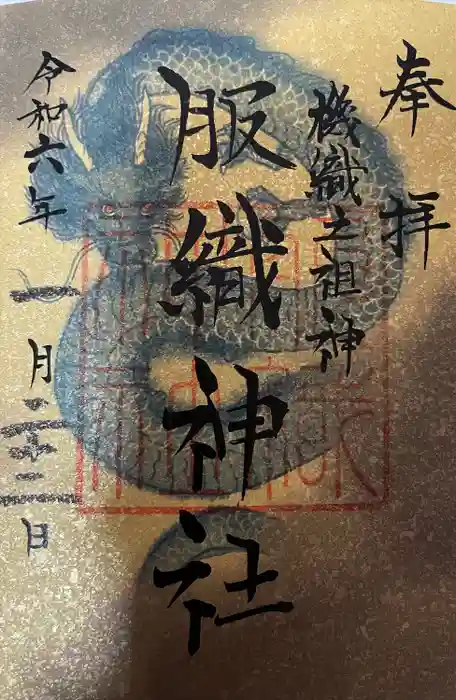 奉拝
機織之祖神
服織神社
令和六年一月二三日